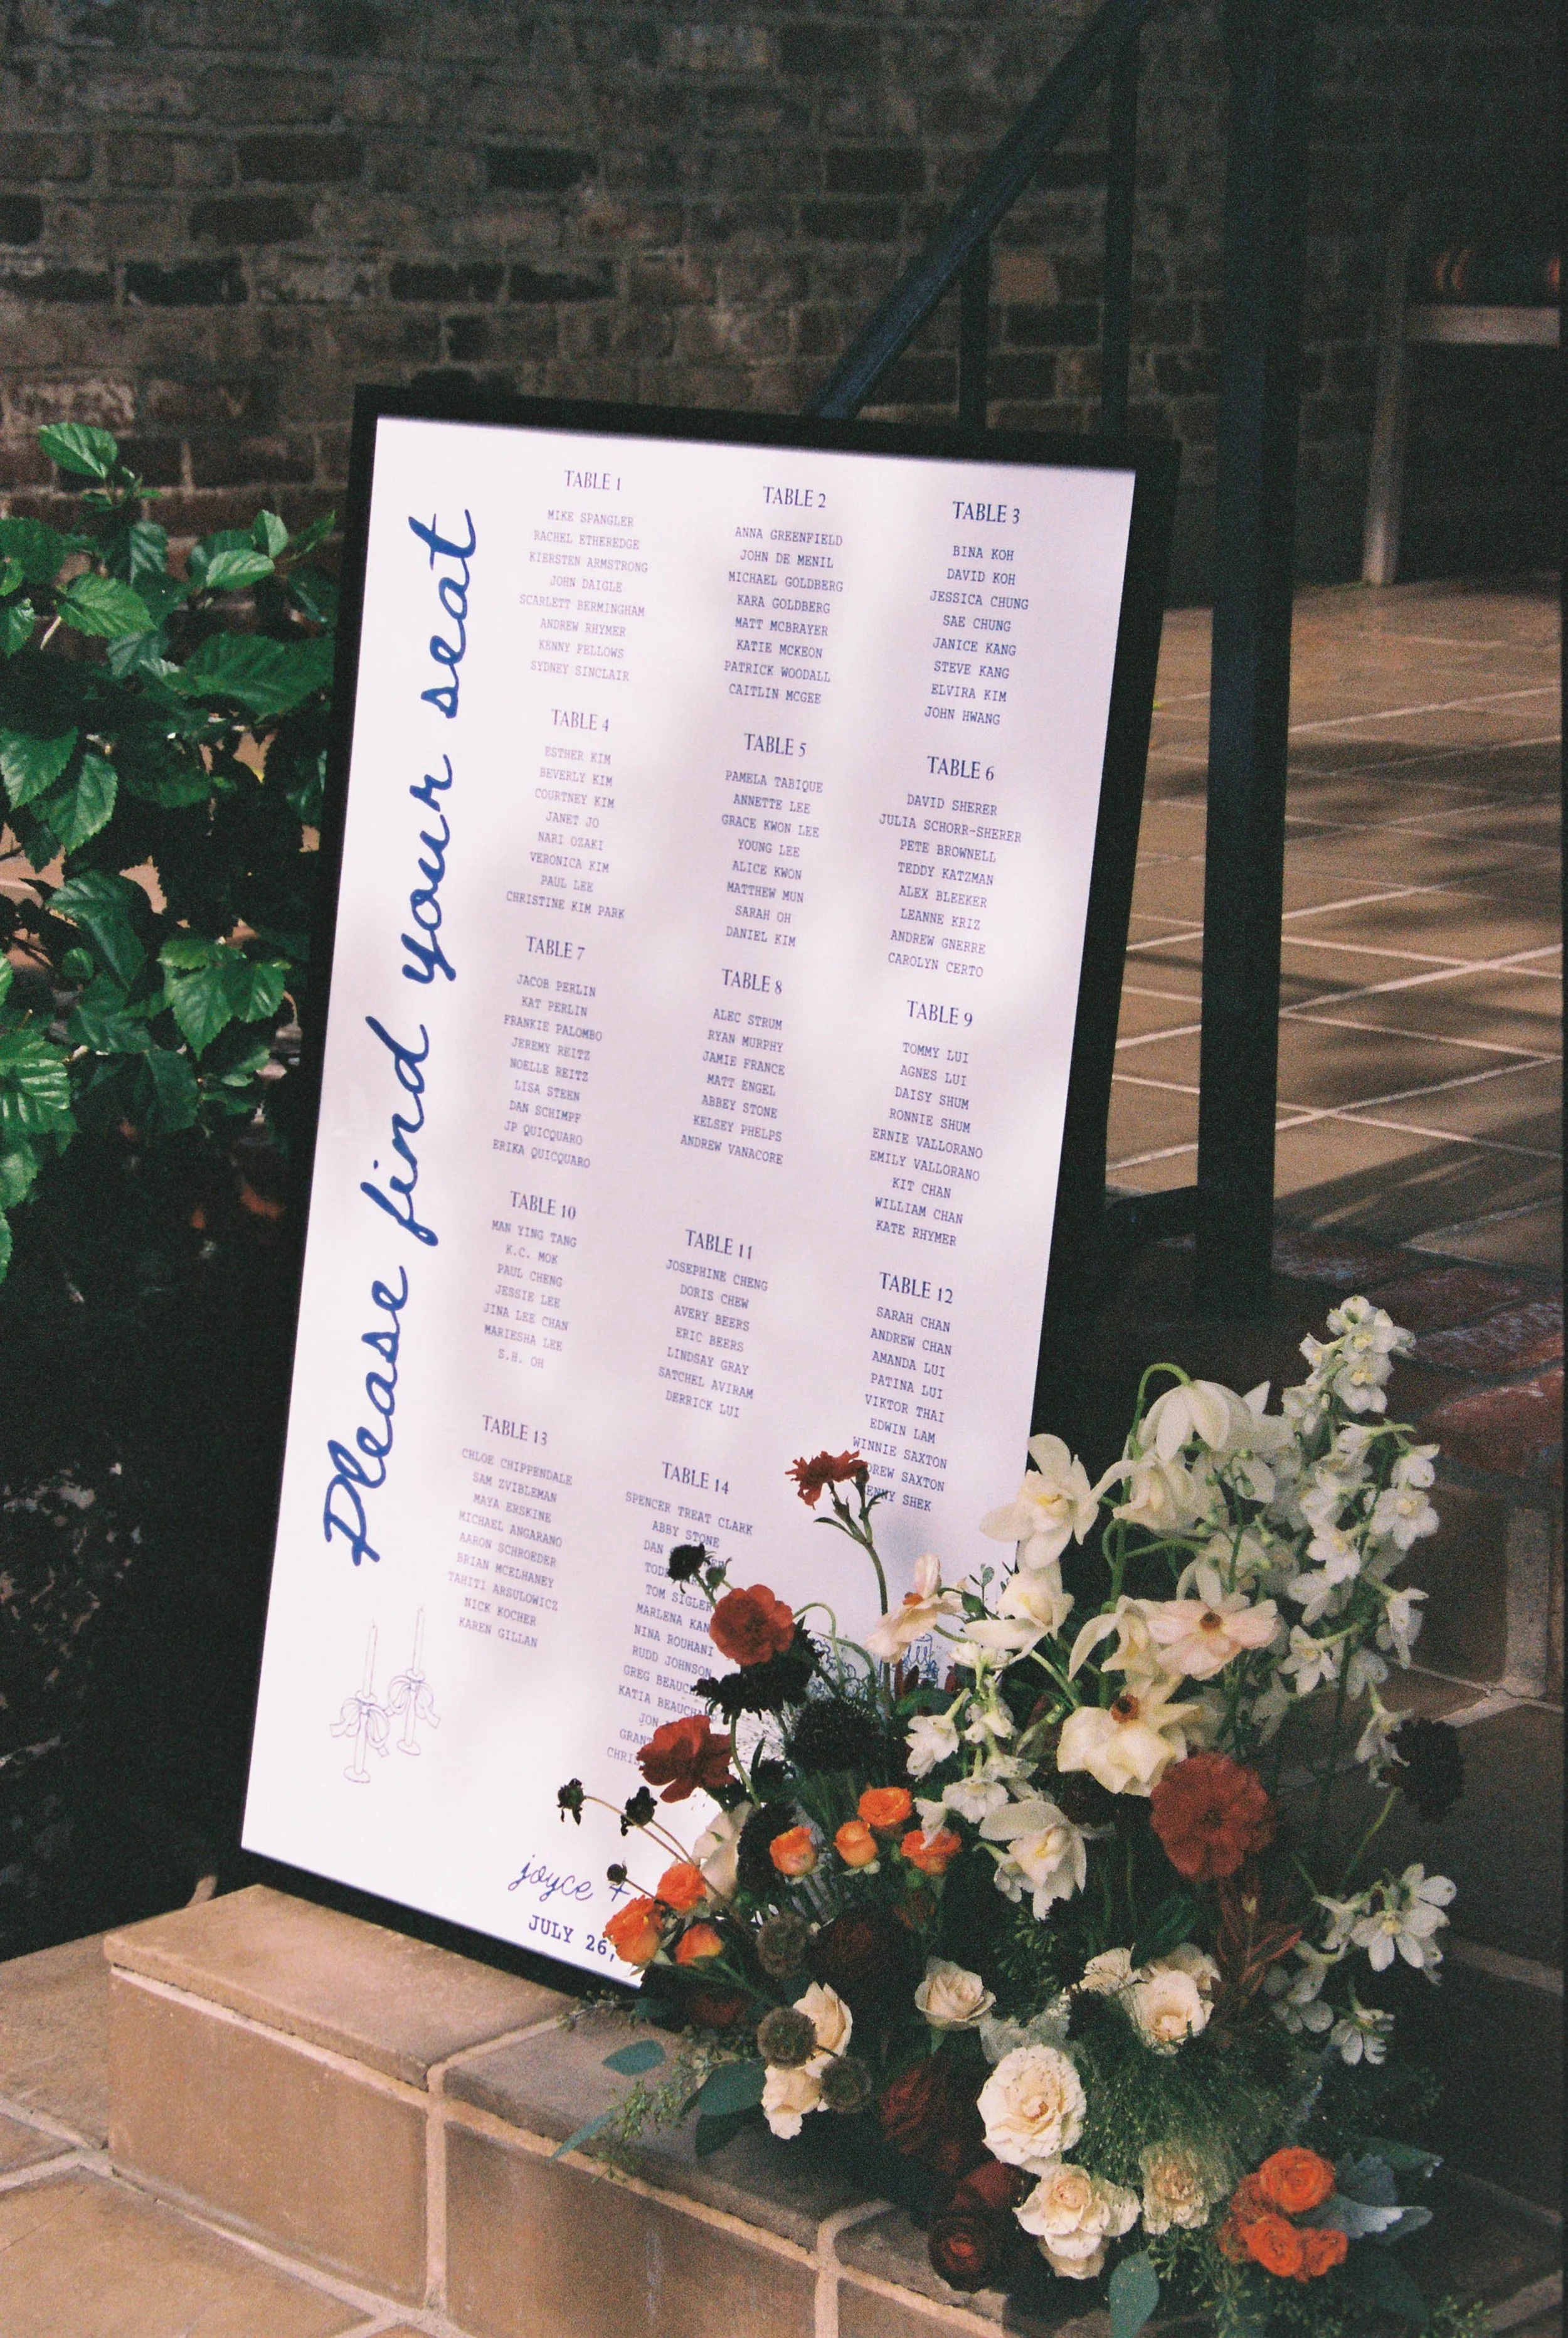 Please find your seat
TABLE 1
MIKE SPANGLER
RACHEL ETHEREDGE
KIERSTEN ARMSTRONG
JOHN DAIGLE
SCARLETT BERMINGHAM
ANDREW RHYMER
KENNY FELLOWS
SYDNEY SINCLAIR
TABLE 2
ANNA GREENFIELD
JOHN DE MENIL
MICHAEL GOLDBERG
KARA GOLDBERG
MATT MCBRAYER
KATIE MCKEON
PATRICK WOODALL
CAITLIN MCGEE
TABLE 3
BINA KOH
DAVID KOH
JESSICA CHUNG
SAE CHUNG
JANICE KANG
STEVE KANG
ELVIRA KIM
JOHN HWANG
TABLE 4
ESTHER KIM
BEVERLY KIM
COURTNEY KIM
JANET JO
NARI OZAKI
VERONICA KIM
PAUL LEE
CHRISTINE KIM PARK
TABLE 5
PAMELA TABIQUE
ANNETTE LEE
GRACE KWON LEE
YOUNG LEE
ALICE KWON
MATTHEW MUN
SARAH OH
DANIEL KIM
TABLE 6
DAVID SHERER
JULIA SCHORR-SHERER
PETE BROWNELL
TEDDY KATZMAN
ALEX BLEEKER
LEANNE KRIZ
ANDREW GNERRE
CAROLYN CERTO
TABLE 7
JACOB PERLIN
KAT PERLIN
FRANKIE PALOMBO
JEREMY REITZ
NOELLE REITZ
LISA STEEN
DAN SCHIMPF
JP QUICQUARO
ERIKA QUICQUARO
TABLE 8
ALEC STRUM
RYAN MURPHY
JAMIE FRANCE
MATT ENGEL
ABBEY STONE
KELSEY PHELPS
ANDREW VANACORE
TABLE 9
TOMMY LUI
AGNES LUI
DAISY SHUM
RONNIE SHUM
ERNIE VALLORANO
EMILY VALLORANO
KIT CHAN
WILLIAM CHAN
KATE RHYMER
TABLE 10
MAN YING TANG
K.C. MOK
PAUL CHENG
JESSIE LEE
JINA LEE CHAN
MARIESHA LEE
S.H. OH
TABLE 11
JOSEPHINE CHENG
DORIS CHEW
AVERY BEERS
ERIC BEERS
LINDSAY GRAY
SATCHEL AVIRAM
DERRICK LUI
TABLE 12
SARAH CHAN
ANDREW CHAN
AMANDA LUI
PATINA LUI
VIKTOR THAI
EDWIN LAM
WINNIE SAXTON
SAXTON
SHEK
TABLE 13
CHLOE CHIPPENDALE
SAM ZVIBLEMAN
MAYA ERSKINE
MICHAEL ANGARANO
AARON SCHROEDER
BRIAN MCELHANEY
TAHITI ARSULOWICZ
NICK KOCHER
KAREN GILLAN
TABLE 14
SPENCER TREAT CLARK
ABBY STONE
DAN
TOM SIGLER
MARLENA
NINA ROUHANI
RUDD JOHNSON
GREG
KATIA
JON
joyce +
JULY 26,